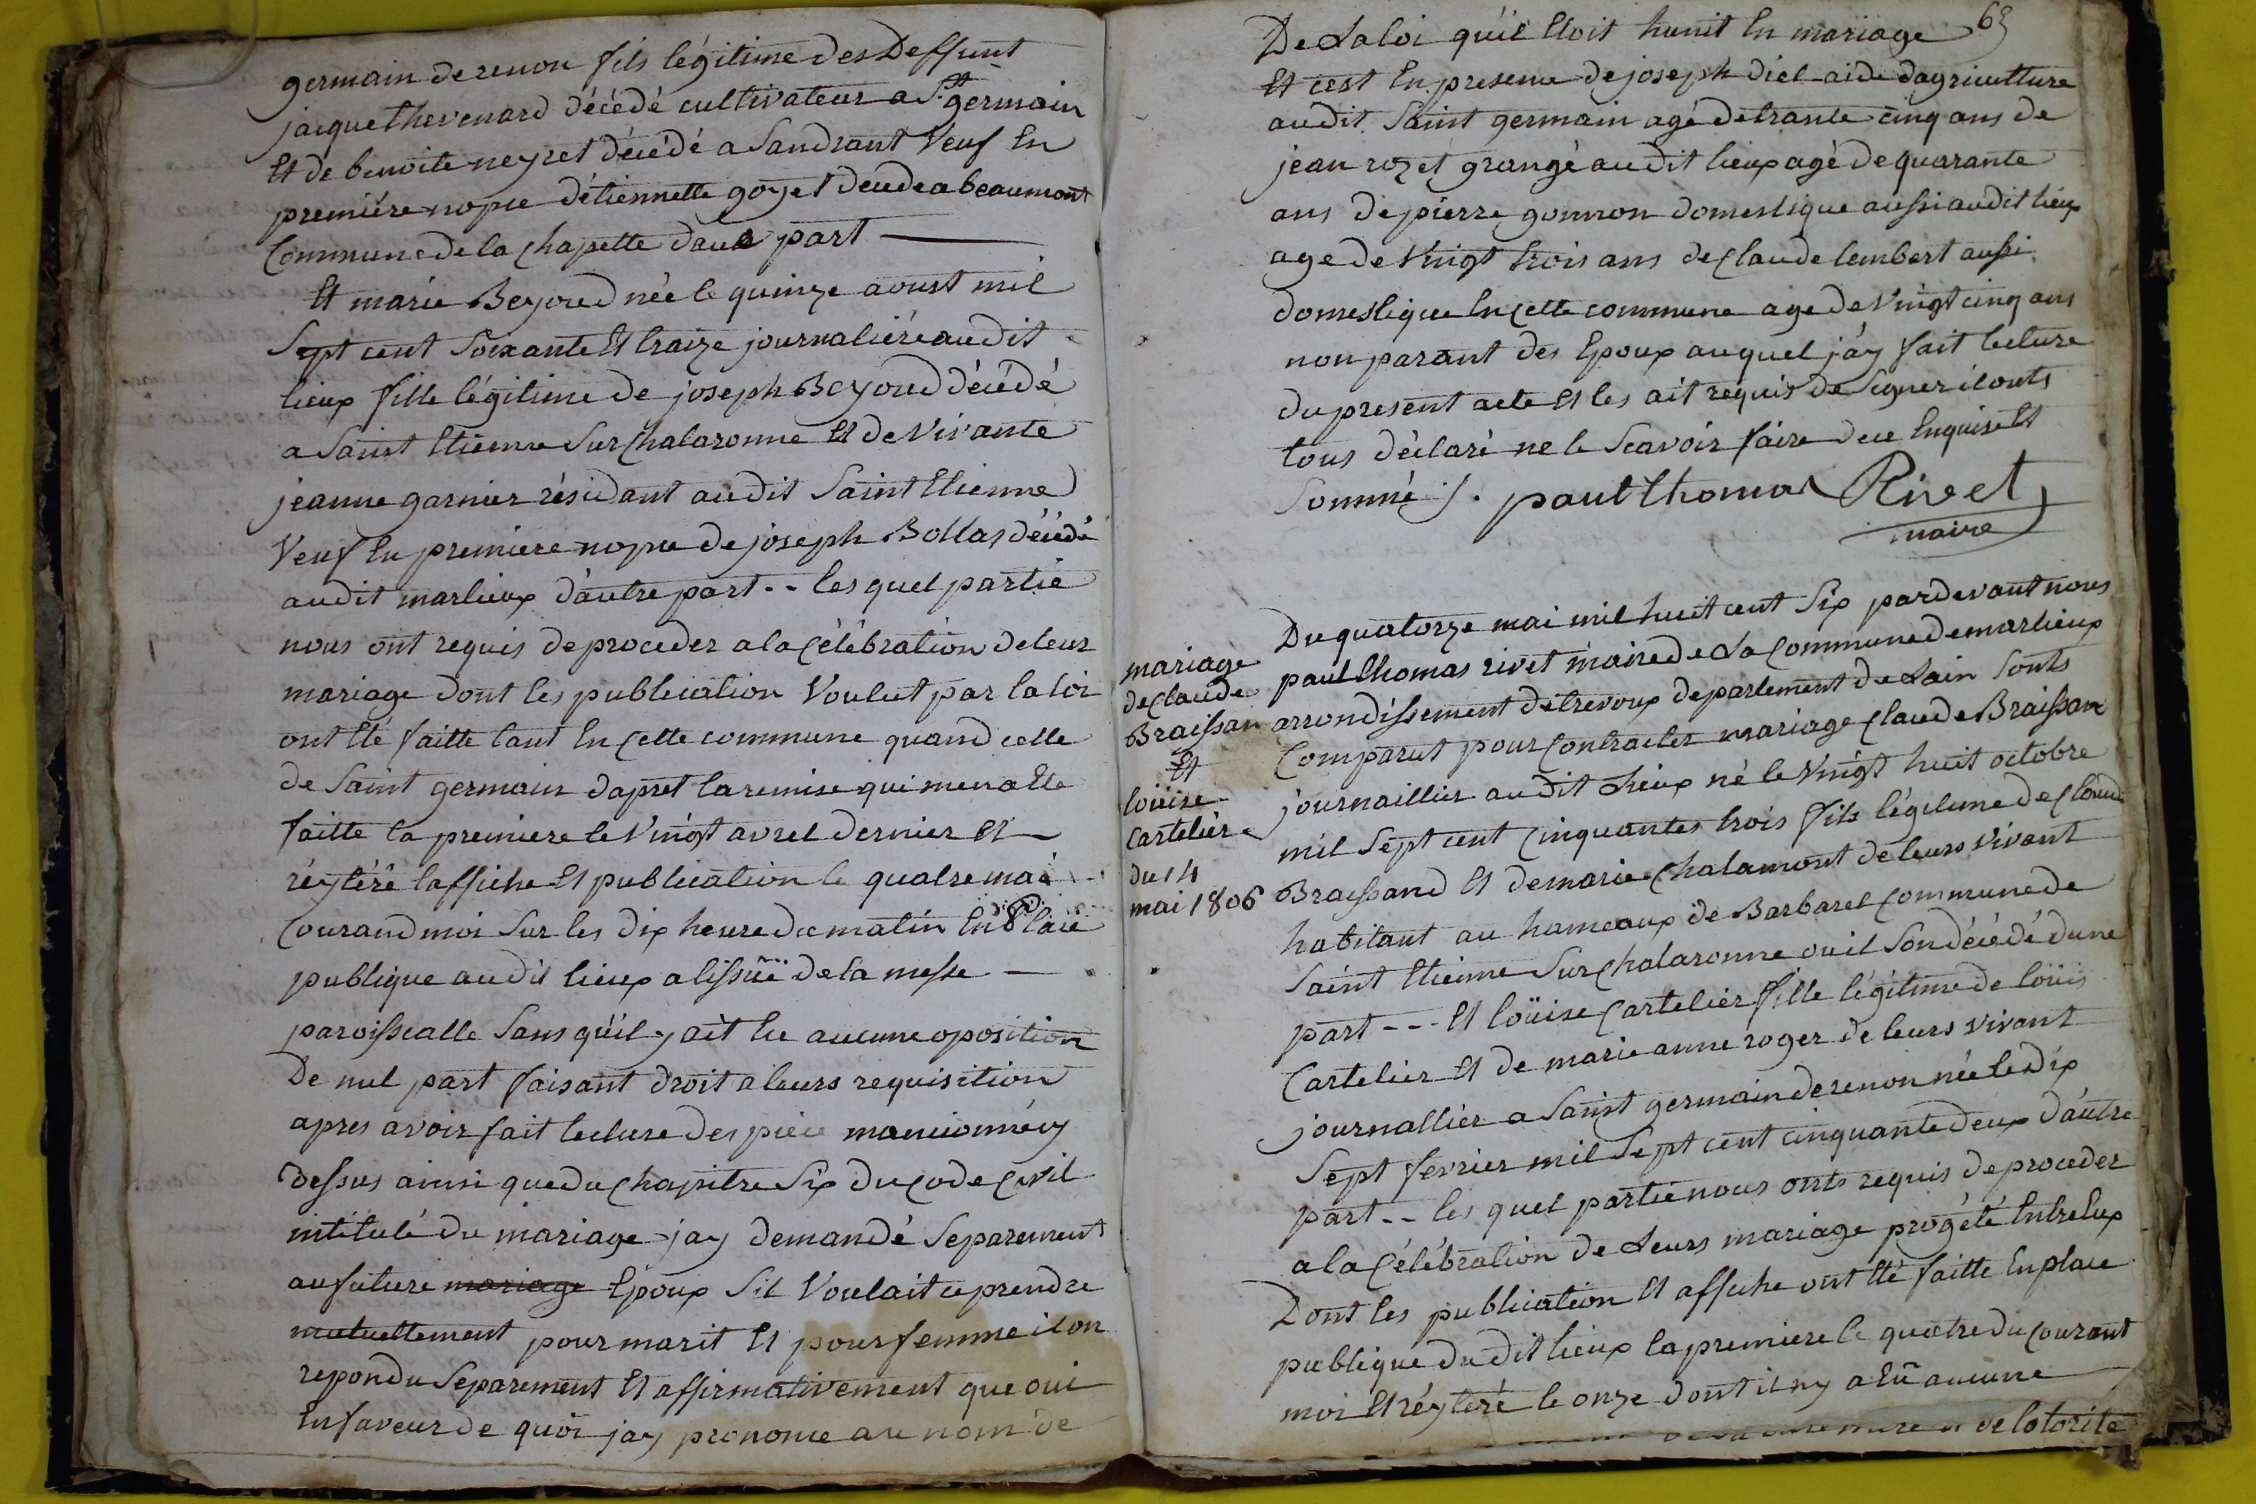 germain de renon fils légitime des Deffunt
jacque thevenard décédé cultivateur a St germain
Et de benoite neyret décédé a Sandrant Veuf En
premiére nopce d'étiennette goyet décdée a beaumont
Commune de la chapelle d'aue part
Et marie Beyoud née le quinze aoust mil
Sept cent Soixante Et traize journaliére audit
lieux fille légitime de joseph Beyoud décédé
a Saint Etienne Sur chalaronne Et de Vivante
jeanne garnier résidant audit Saint Etienne
Veuf En premiere nopce de joseph Bollas décédé
audit marlieux d'autre part -- les quel partie
nous ont requis de proceder a la célébration de leur
mariage dont les publication Voulut par la loi
ont Eté faitte tant En cette commune quand celle
de Saint germain daprest la remise qui men a Eté
faitte la premiere le Vingt avrel dernier Et
réÿtéré laffiche Et publication le quatre mai
Courand moi Sur les dix heure du matin En place
publique au dit lieux a lissüe de la messe
paroissealle Sans qu'il y ait Eu aucune oposition
De nul part faisant droit a leurs requisition
apres avoir fait lecture des piéce mencionnéÿ
dessus ainsi que du chapitre Six du code Civil
intitulé du mariage jay demandé Séparement
au future mariage Epoux Sil Voulait ce prendre
mutuellement pour marit Et pour femme il on
repondu Séparement Et affirmativement que oui
En faveur de quoi jay prononcé au nom de
63
De La loi qu'il Etoit hunit En mariage
Et c'est En presence de joseph diel aide d'agriculture
audit Saint germain agé de trante cinq ans de
jean rozet grangé au dit lieux agé de quarante
ans de pierre gonnon domestique aussi audit lieux
age de Vingt trois ans de claude lembert aussi
domestique En cette commune age de Vingt cinq ans
non parant des Epoux auquel j'ay fait lecture
du present acte Et les ait requis de Signer il onts
tous déclaré ne le Scavoir faire de ce Enquise Et
Sommé ./. paul thomas Rivet
maire
mariage
de claude
Braissan
Et
loüise
Cartelier
du 14
mai 1806
Du quatorze mai mil huit cent Six pardevant nous
paul thomas rivet maire de La Commune de marlieux
arrondissement de trevoux departement de Lain Sonts
Comparut pour Contracter mariage claude Braissan
journaillier au dit Lieux né le Vingt huit octobre
mil Sept cent cinquantes trois fils légitime de claude
Braissand Et de marie chalamont de leurs vivant
habitant au hameaux de Barbarel commune de
Saint Etienne Sur chalaronne ou il Son décédé dune
part --- Et loüise Cartelier fille légitime de loüis
Cartelier Et de marie anne roger de leurs vivant
journallier a Saint germain de renon née le dix
Sept fevrier mil Sept cent cinquante deux d'autre
part -- les quel partie nous onts requis de proceder
a la célébration de Leurs mariage progété Entre Eux
Dont les publication Et affiche ont Eté faitte En place
publique du dit lieux la premiere le quatre du courant
moi Et réÿtéré le onze dont il ny a Eü aucune
de lotorité